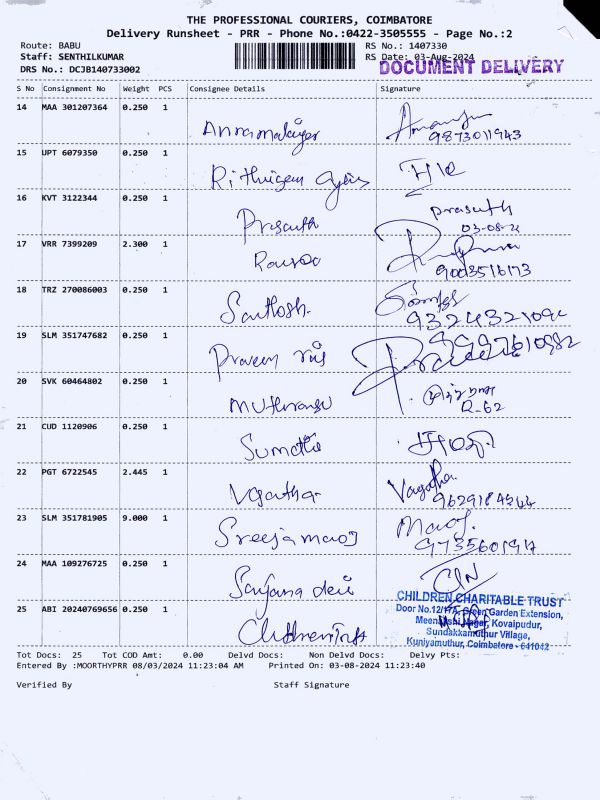 THE PROFESSIONAL COURIERS, COIMBATORE
Delivery Runsheet - PRR - Phone No.:0422-3505555 - Page No.:2
Route: BABU
RS No.: 1407330
Staff: SENTHILKUMAR
RS Date: 03-Aug-2024
DRS No.: DCJB140733002
DOCUMENT DELIVERY
S No Consignment No Weight PCS Consignee Details Signature
14 MAA 301207364 0.250 1
9873011943
15 UPT 6079350 0.250 1
16 KVT 3122344 0.250 1 Prasanth prasanth
03-08-24
17 VRR 7399209 2.300 1
9003516173
18 TRZ 270086003 0.250 1 Santhosh.
19 SLM 351747682 0.250 1 Praveen
20 SVK 60464802 0.250 1
R-62
21 CUD 1120906 0.250 1 Sumathi
22 PGT 6722545 2.445 1
23 SLM 351781905 9.000 1 Sreeja manoj Manoj.
24 MAA 109276725 0.250 1 Sanjana devi
25 ABI 20240769656 0.250 1 Children Trust
CHILDREN CHARITABLE TRUST
Door No.12/17A, Green Garden Extension,
Meenakshi Nagar, Kovaipudur,
Sundakkamuthur Village,
Kuniyamuthur, Coimbatore - 641042
Tot Docs: 25 Tot COD Amt: 0.00 Delvd Docs: Non Delvd Docs: Delvy Pts:
Entered By :MOORTHYPRR 08/03/2024 11:23:04 AM Printed On: 03-08-2024 11:23:40
Verified By Staff Signature